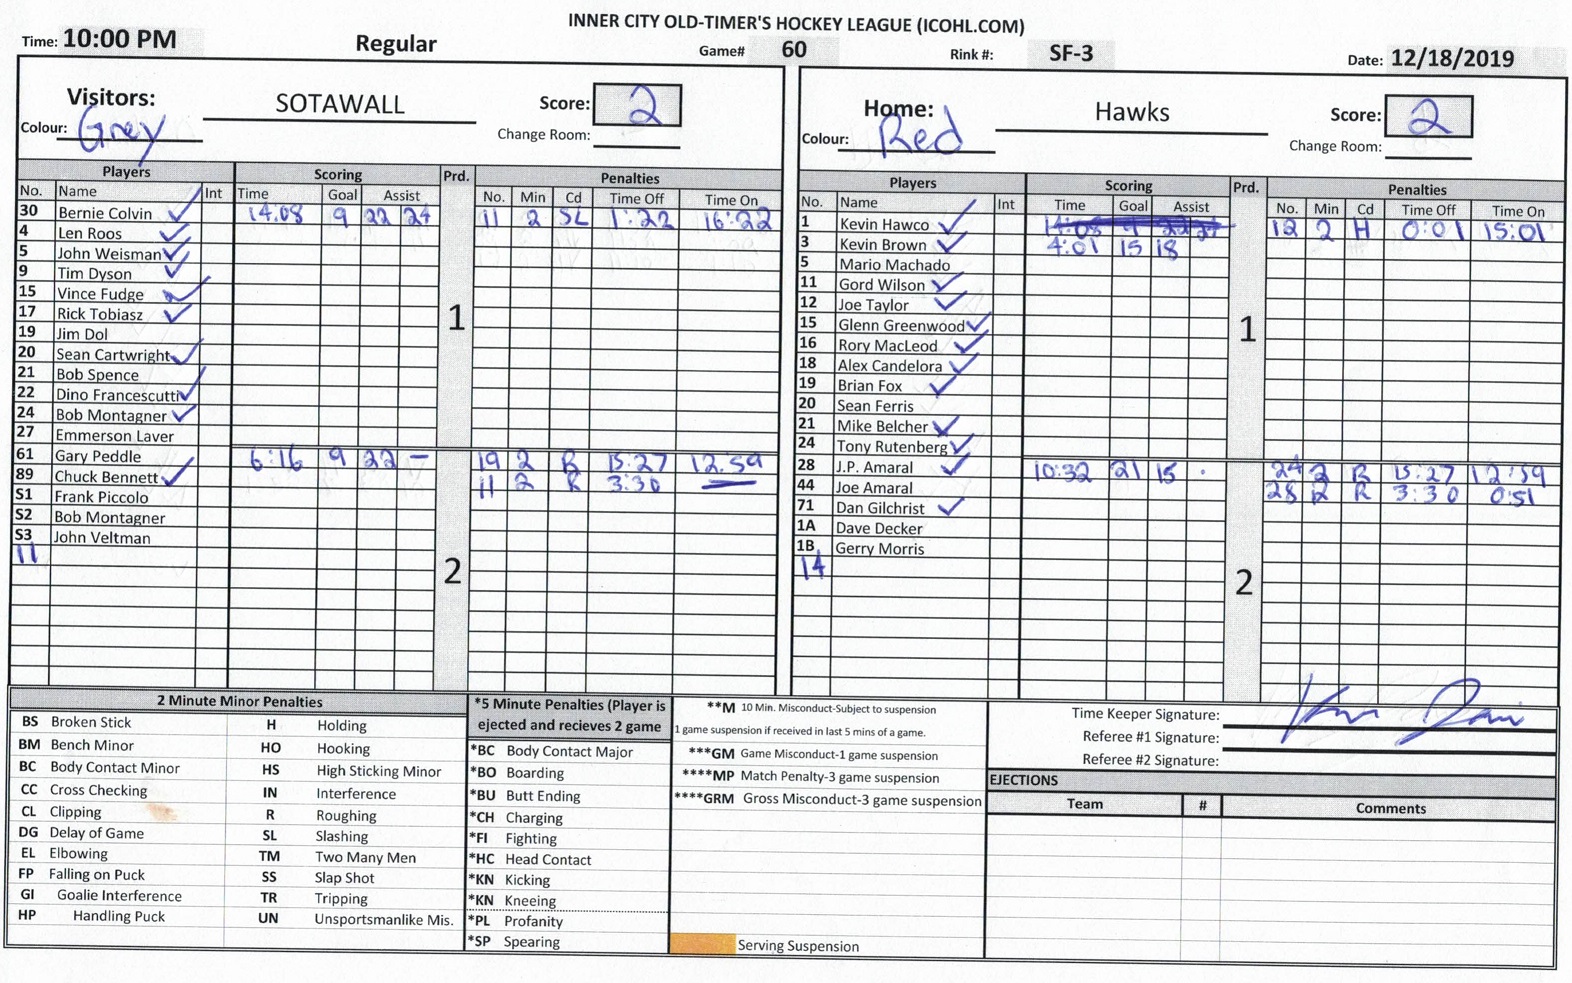 INNER CITY OLD-TIMER'S HOCKEY LEAGUE (ICOHL.COM)
Time: 10:00 PM Regular Game# 60 Rink #: SF-3 Date: 12/18/2019
Visitors: SOTAWALL Score: 2
Colour: Grey Change Room:
Players Scoring Prd. Penalties
No. Name Int Time Goal Assist No. Min Cd Time Off Time On
30 Bernie Colvin ✓ 14:08 9 22 24 11 2 SL 1:22 16:22
4 Len Roos ✓
5 John Weisman ✓
9 Tim Dyson ✓
15 Vince Fudge ✓
17 Rick Tobiasz ✓
1
19 Jim Dol
20 Sean Cartwright ✓
21 Bob Spence
22 Dino Francescutti ✓
24 Bob Montagner ✓
27 Emmerson Laver
61 Gary Peddle 6:16 9 22 — 19 2 R 15:27 12:59
89 Chuck Bennett ✓ 11 2 R 3:30 —
S1 Frank Piccolo
S2 Bob Montagner
S3 John Veltman
11
2
Home: Hawks Score: 2
Colour: Red Change Room:
Players Scoring Prd. Penalties
No. Name Int Time Goal Assist No. Min Cd Time Off Time On
1 Kevin Hawco ✓ 14:08 9 22 24 12 2 H 0:01 15:01
3 Kevin Brown ✓ 4:01 15 18
5 Mario Machado
11 Gord Wilson ✓
12 Joe Taylor ✓
15 Glenn Greenwood ✓
1
16 Rory MacLeod ✓
18 Alex Candelora ✓
19 Brian Fox ✓
20 Sean Ferris
21 Mike Belcher ✓
24 Tony Rutenberg ✓
28 J.P. Amaral ✓ 10:32 21 15 · 24 2 R 15:27 12:59
44 Joe Amaral 28 2 R 3:30 0:51
71 Dan Gilchrist ✓
1A Dave Decker
1B Gerry Morris
14
2
2 Minute Minor Penalties
BS Broken Stick H Holding
BM Bench Minor HO Hooking
BC Body Contact Minor HS High Sticking Minor
CC Cross Checking IN Interference
CL Clipping R Roughing
DG Delay of Game SL Slashing
EL Elbowing TM Two Many Men
FP Falling on Puck SS Slap Shot
GI Goalie Interference TR Tripping
HP Handling Puck UN Unsportsmanlike Mis.
*5 Minute Penalties (Player is
ejected and recieves 2 game
*BC Body Contact Major
*BO Boarding
*BU Butt Ending
*CH Charging
*FI Fighting
*HC Head Contact
*KN Kicking
*KN Kneeing
*PL Profanity
*SP Spearing
**M 10 Min. Misconduct-Subject to suspension
1 game suspension if received in last 5 mins of a game.
***GM Game Misconduct-1 game suspension
****MP Match Penalty-3 game suspension
****GRM Gross Misconduct-3 game suspension
Serving Suspension
Time Keeper Signature:
Referee #1 Signature:
Referee #2 Signature:
EJECTIONS
Team # Comments